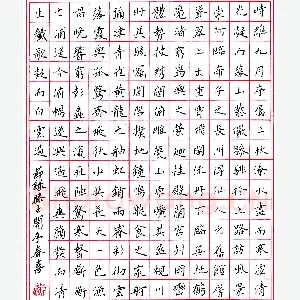 時維九月序屬三秋潦水盡而寒潭清煙
光凝而暮山紫儼驂騑於上路訪風景於
崇阿臨帝子之長洲得仙人之舊館層巒
聳翠上出重霄飛閣流丹下臨無地鶴汀
鳧渚窮島嶼之縈迴桂殿蘭宮即岡巒之
體勢披繡闥俯雕甍山原曠其盈視川澤
紆其駭矚閭閻撲地鐘鳴鼎食之家舸艦
彌津青雀黃龍之舳虹銷雨霽彩徹雲衢
落霞與孤鶩齊飛秋水共長天一色漁舟
唱晚響窮彭蠡之濱雁陣驚寒聲斷衡陽
之浦遙吟俯暢逸興遄飛爽籟發而清風
生纖歌凝而白雲遏 節錄滕王閣序春喜